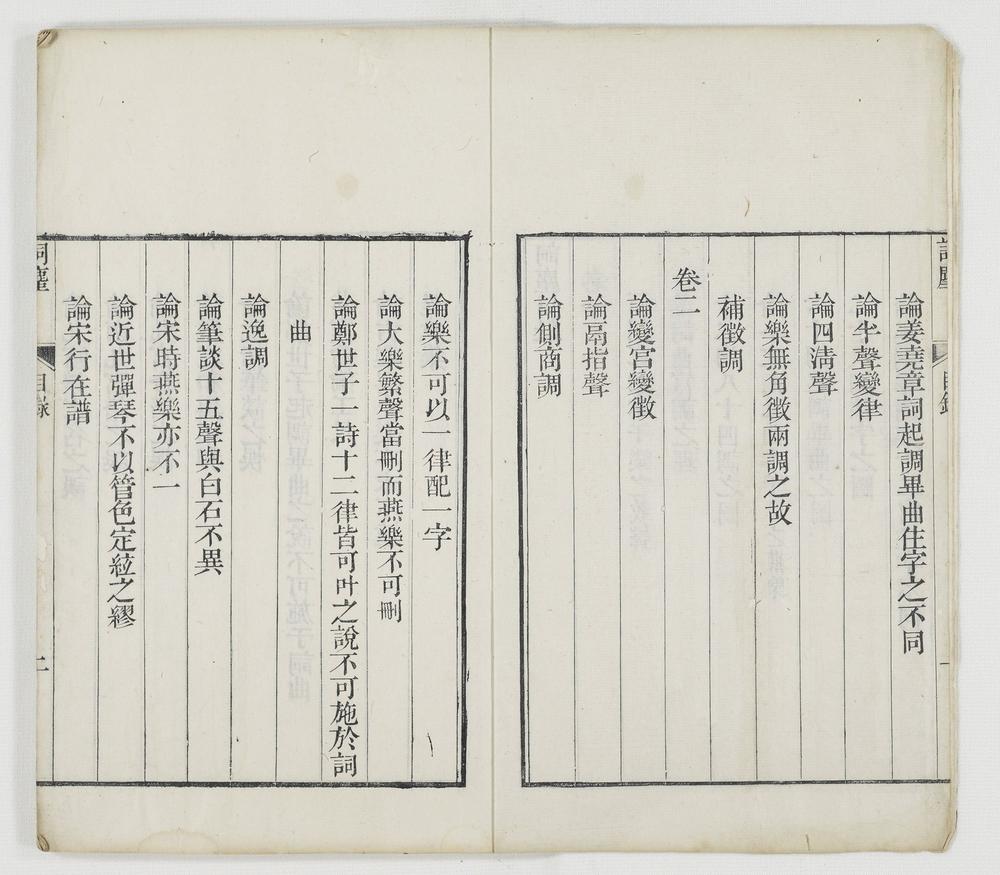 論姜堯章詞起調畢曲住字之不同
論半聲變律
論四淸聲
論樂無角徵兩調之故
補徵調
卷二
論變宮變徵
論鬲指聲
論側商調
論樂不可以一律配一字
論大樂繁聲當刪而燕樂不可刪
論鄭世子一詩十二律皆可叶之說不可施於詞
曲
論逸調
論筆談十五聲與白石不異
論宋時燕樂亦不一
論近世彈琴不以管色定絃之繆
論宋行在譜
詞麈
目錄
二